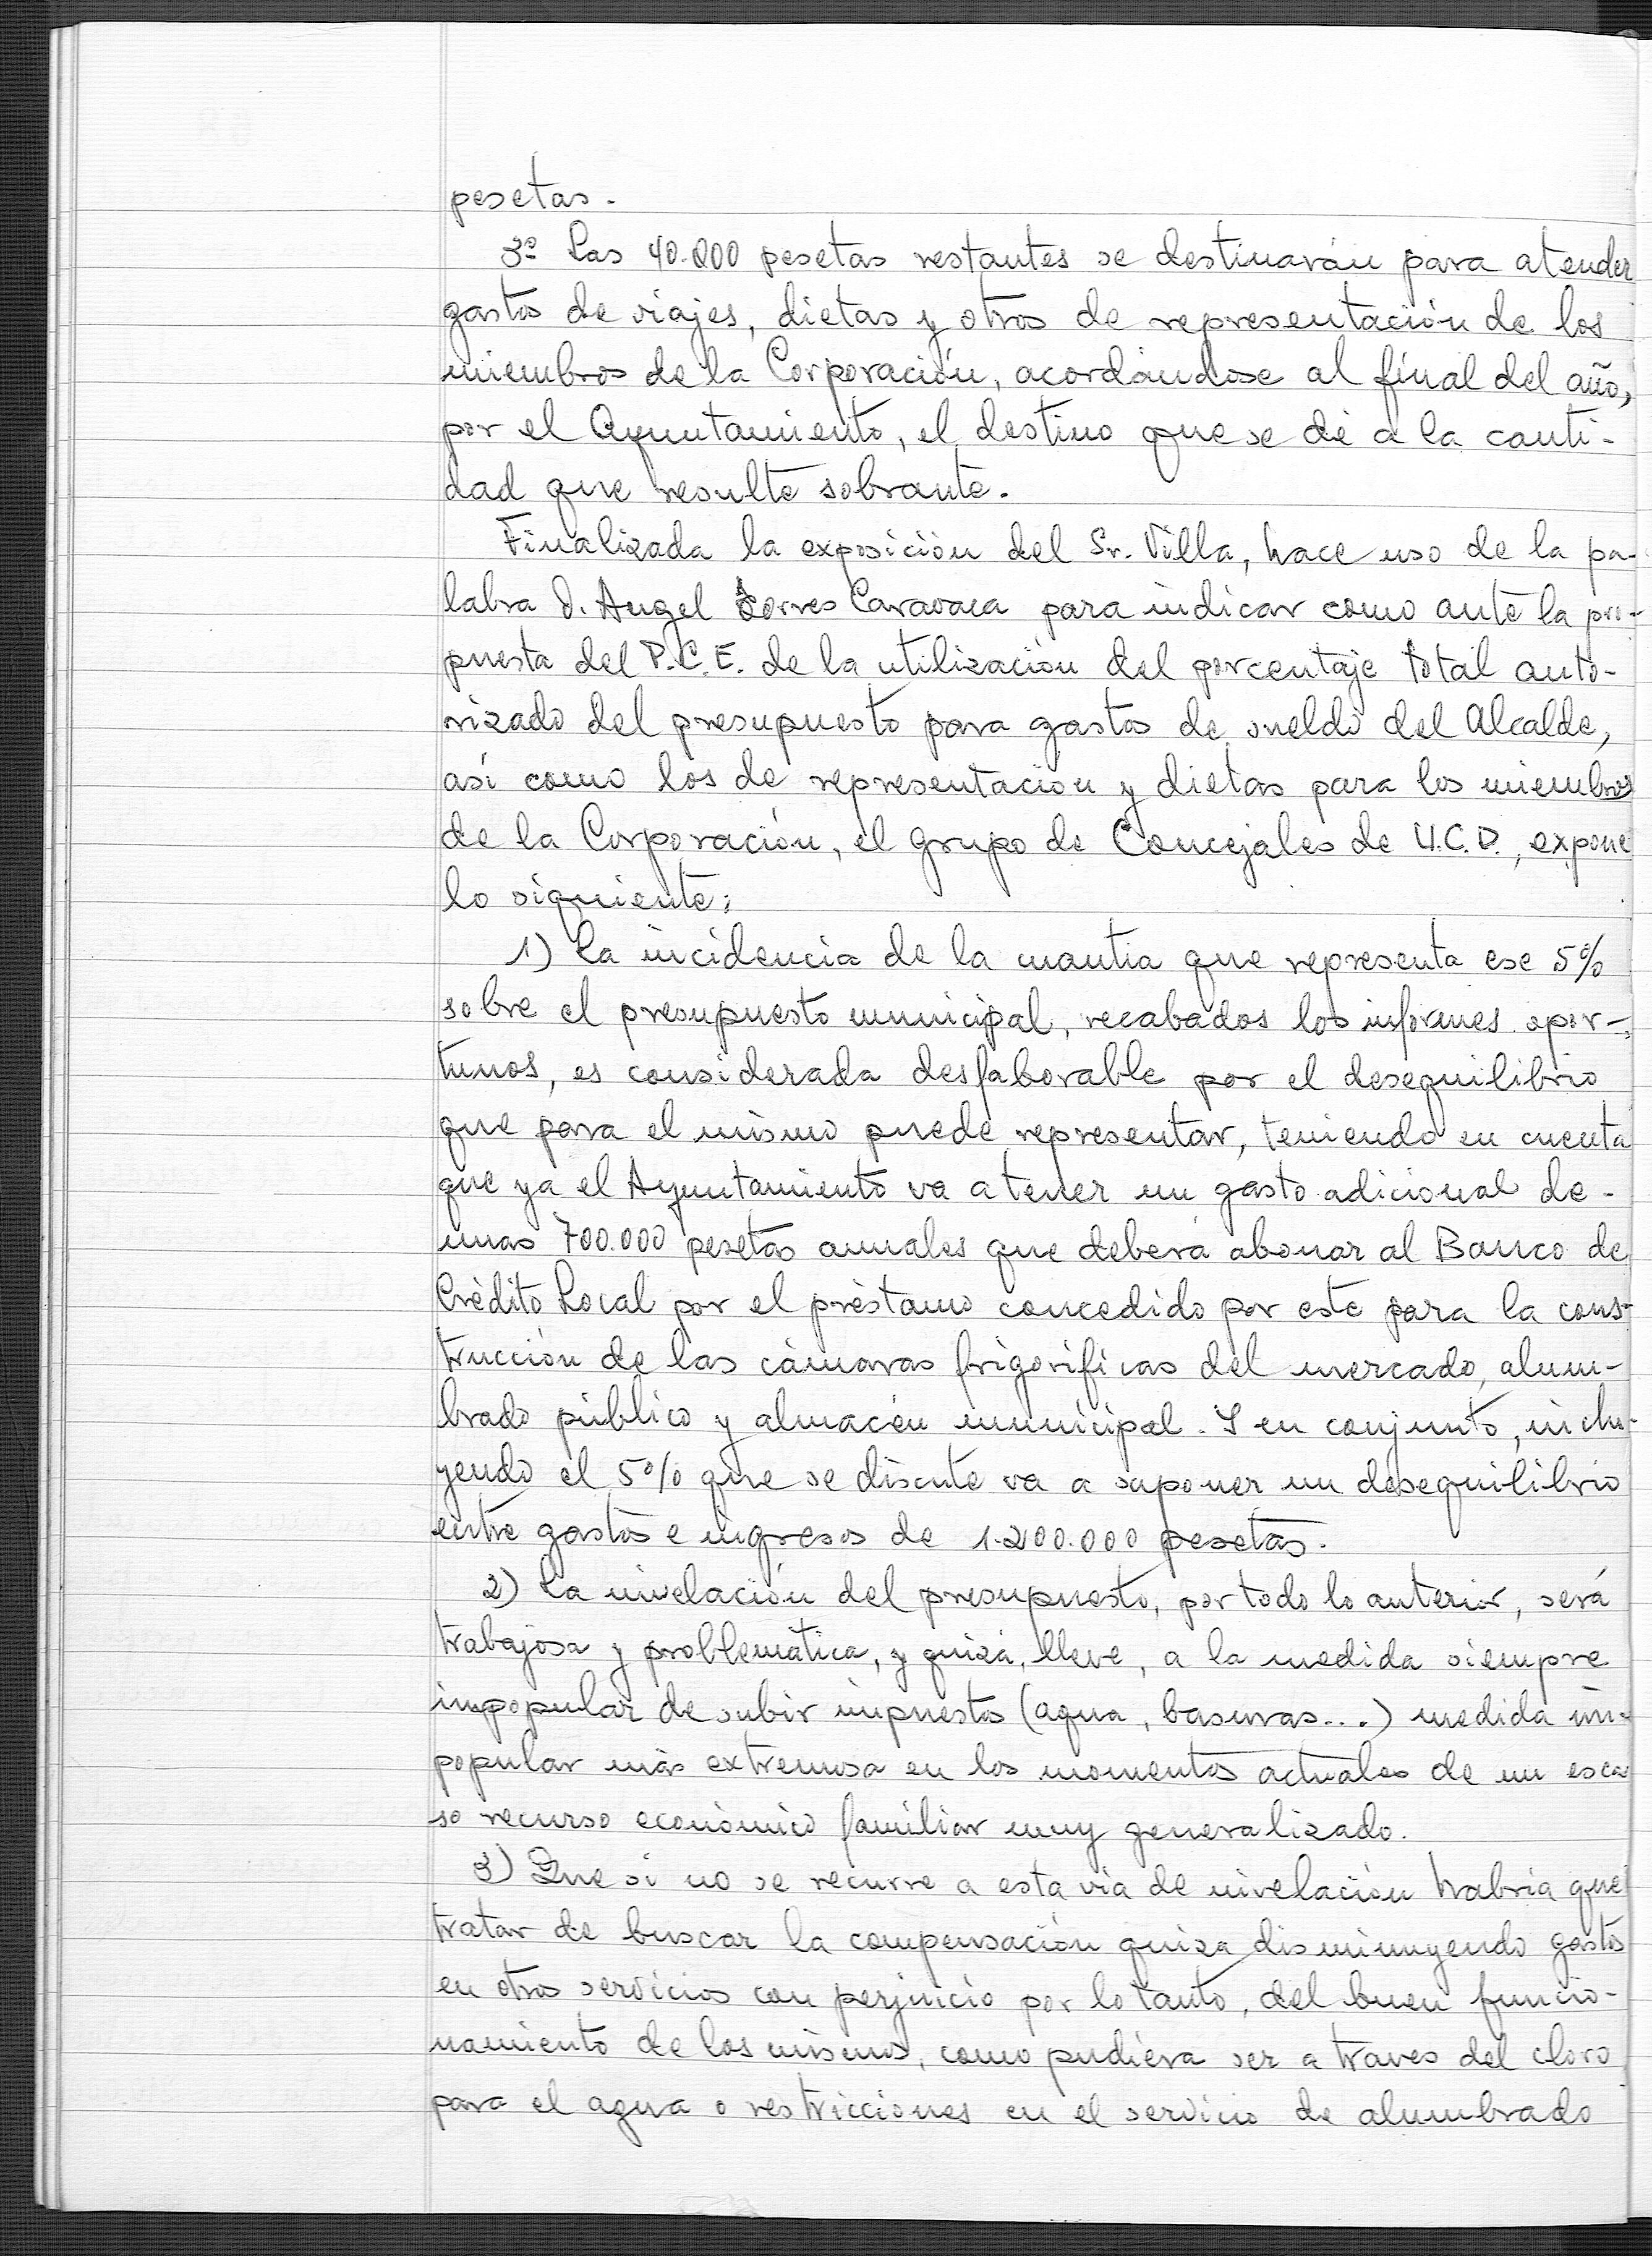 pesetas.
3º Las 40.000 pesetas restantes se destinarán para atender
gastos de viajes, dietas y otros de representación de los
miembros de la Corporación, acordándose al final del año,
por el Ayuntamiento, el destino que se dé a la canti-
dad que resulte sobrante.
Finalizada la exposición del Sr. Villa, hace uso de la pa-
labra D. Angel Torres Caravaca para indicar como ante la pro-
puesta del P.C.E. de la utilización del porcentaje total auto-
rizado del presupuesto para gastos de sueldo del Alcalde,
así como los de representación y dietas para los miembros
de la Corporación, el grupo de Concejales de U.C.D., expone
lo siguiente:
1) La incidencia de la cuantia que representa ese 5%
sobre el presupuesto municipal, recabados los informes opor-
tunos, es considerada desfaborable por el desequilibrio
que para el mismo puede representar, teniendo en cuenta
que ya el Ayuntamiento va a tener un gasto adicional de-
unas 700.000 pesetas anuales que deberá abonar al Banco de
Crédito Local por el préstamo concedido por este para la cons-
trucción de las cámaras frigoríficas del mercado, alum-
brado público y almacén municipal. Y en conjunto, inclu-
yendo el 5% que se discute va a suponer un desequilibrio
entre gastos e ingresos de 1.200.000 pesetas.
2) La nivelación del presupuesto, por todo lo anterior, será
trabajosa y problemática, y quizá, lleve, a la medida siempre
impopular de subir impuestos (agua, basuras...) medida im-
popular más extremosa en los momentos actuales de un esca
so recurso económico familiar muy generalizado.
3) Que si no se recurre a esta vía de nivelación habría que
tratar de buscar la compensación quiza disminuyendo gastos
en otros servicios con perjuicio por lo tanto, del buen funcio-
namiento de los mismos, como pudiera ser a traves del cloro
para el agua o restricciones en el servicio de alumbrado